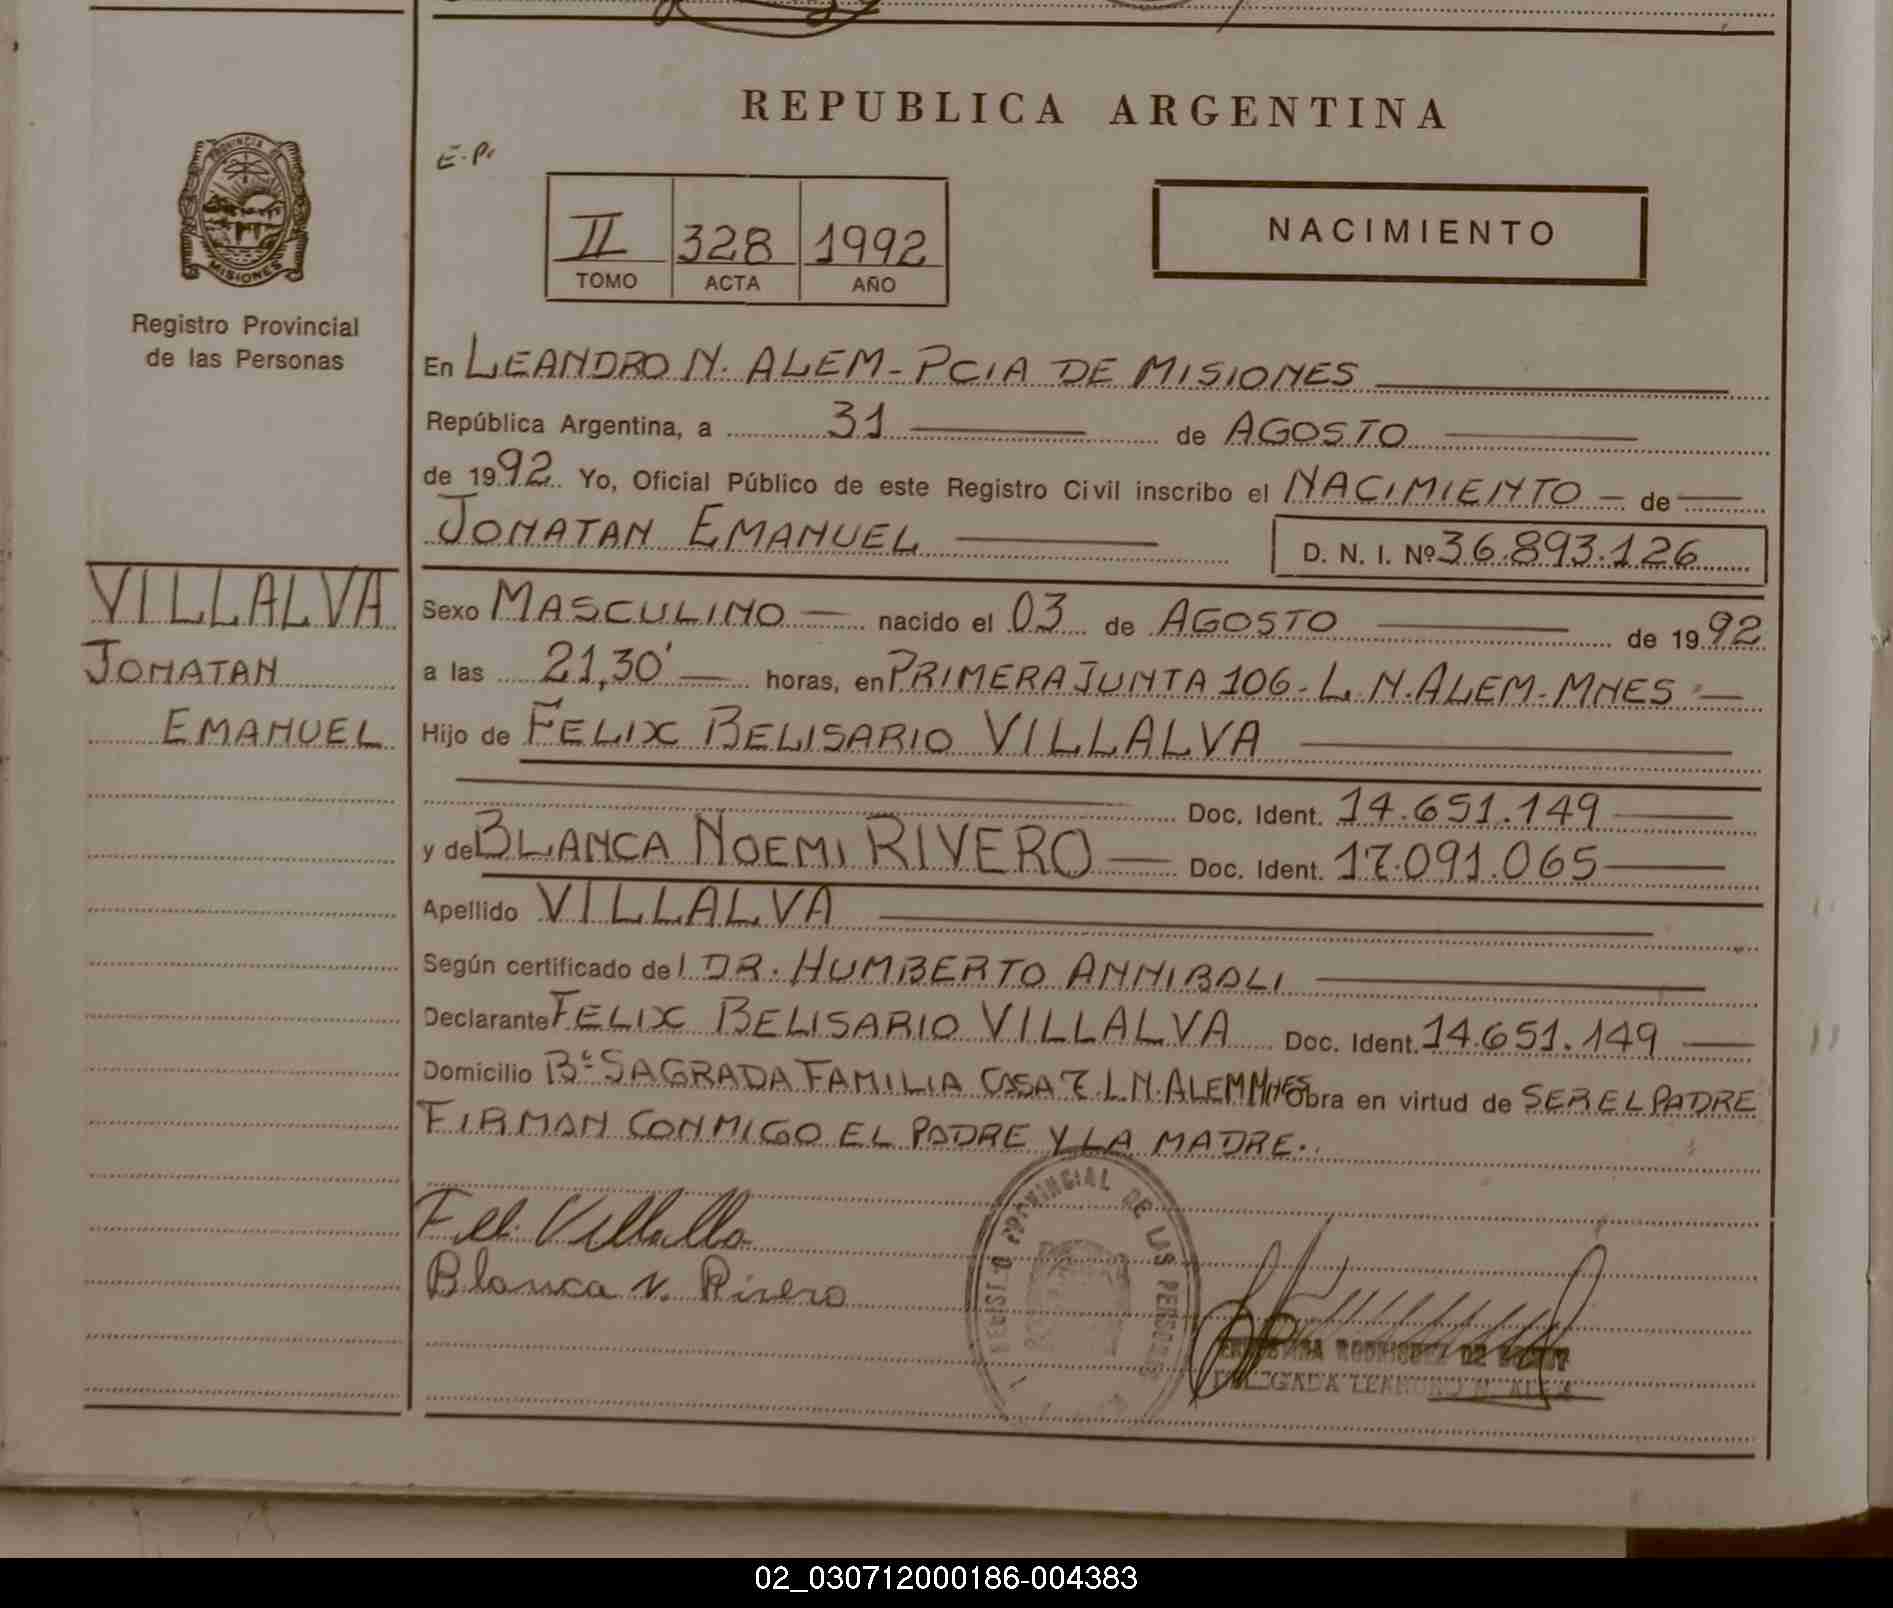 REPUBLICA ARGENTINA
E.P.
II 328 1992
TOMO ACTA AÑO
NACIMIENTO
PROVINCIA DE
MISIONES
Registro Provincial
de las Personas
VILLALVA
JONATAN
EMANUEL
En LEANDRO N. ALEM - PCIA DE MISIONES
República Argentina, a 31 de AGOSTO
de 1992. Yo, Oficial Público de este Registro Civil inscribo el NACIMIENTO de
JONATAN EMANUEL D. N. I. Nº 36.893.126
Sexo MASCULINO nacido el 03 de AGOSTO de 1992
a las 21,30' horas, en PRIMERA JUNTA 106 - L. N. ALEM - MNES
Hijo de FELIX BELISARIO VILLALVA
Doc. Ident. 14.651.149
y de BLANCA NOEMI RIVERO Doc. Ident. 17.091.065
Apellido VILLALVA
Según certificado del DR. HUMBERTO ANNIBALI
Declarante FELIX BELISARIO VILLALVA Doc. Ident. 14.651.149
Domicilio Bº SAGRADA FAMILIA CASA 7 L.N. ALEM MNES Obra en virtud de SER EL PADRE
FIRMAN CONMIGO EL PADRE Y LA MADRE.
Blanca N. Rivero
REGISTRO PROVINCIAL DE LAS PERSONAS
RODRIGUEZ DE
DELEGADA LEANDRO N. ALEM
02_030712000186-004383